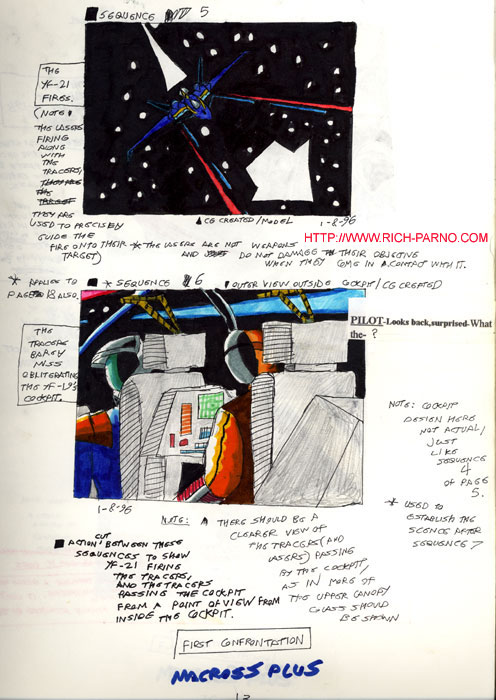 SEQUENCE 5
THE
YF-21
FIRES.
(NOTE:
THE LASERS
FIRING
ALONG
WITH
THE
TRACERS,
THEY ARE
USED TO PRECISELY
GUIDE THE
FIRE ONTO THEIR
TARGET)
CG CREATED/MODEL
1-8-96
HTTP://WWW.RICH-PARNO.COM
* THE LASERS ARE NOT WEAPONS
AND DO NOT DAMAGE THEIR OBJECTIVE
WHEN THEY COME IN A CONTACT WITH IT.
* APPLIES TO
PAGE 18 ALSO.
* SEQUENCE 6
OUTER VIEW OUTSIDE COCKPIT/CG CREATED
PILOT-Looks back,surprised-What
the- ?
THE
TRACERS
BARELY
MISS
OBLITERATING
THE YF-19'S
COCKPIT.
NOTE: COCKPIT
DESIGN HERE
NOT ACTUAL,
JUST
LIKE
SEQUENCE
4
OF PAGE
5.
* USED TO
ESTABLISH THE
SCENCE AFTER
SEQUENCE 7
1-8-96
NOTE: THERE SHOULD BE A
CLEARER VIEW OF
THE TRACERS (AND
LASERS) PASSING
BY THE COCKPIT,
AS IN MORE OF
THE UPPER CANOPY
GLASS SHOULD
BE SHOWN
CUT
ACTION BETWEEN THESE
SEQUENCES TO SHOW
YF-21 FIRING
THE TRACERS,
AND THE TRACERS
PASSING THE COCKPIT
FROM A POINT OF VIEW FROM
INSIDE THE COCKPIT.
FIRST CONFRONTATION
MACROSS PLUS